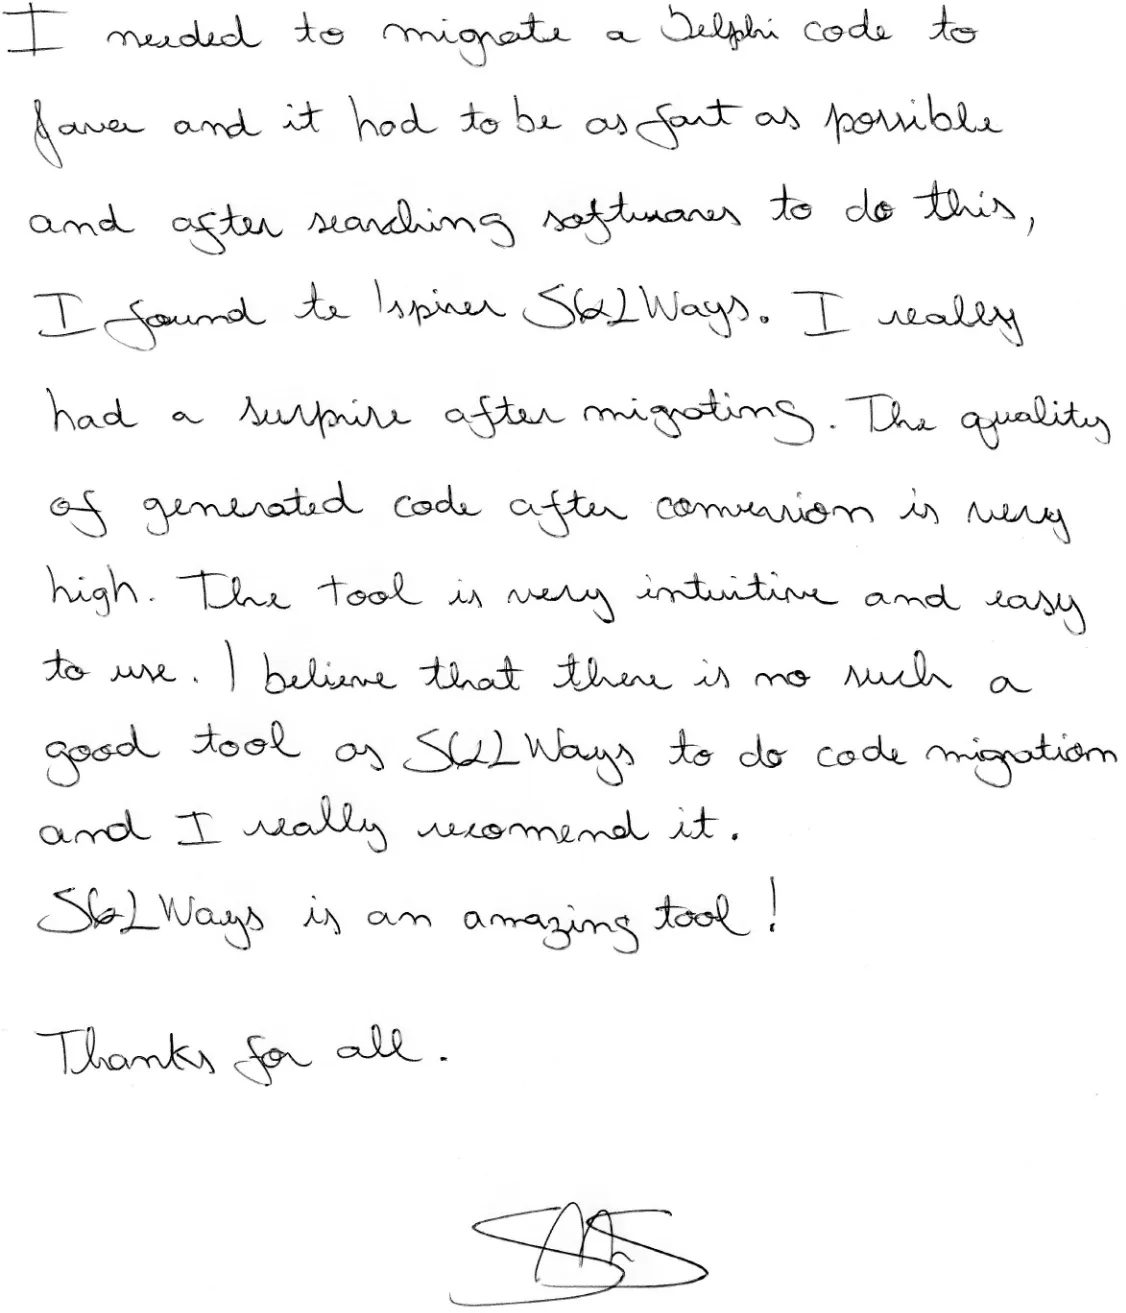 I needed to migrate a Delphi code to
Java and it had to be as fast as possible
and after searching softwares to do this,
I found te Ispirer SQLWays. I really
had a surprise after migrating. The quality
of generated code after conversion is very
high. The tool is very intuitive and easy
to use. I believe that there is no such a
good tool as SQLWays to do code migration
and I really recomend it.
SQLWays is an amazing tool!
Thanks for all.